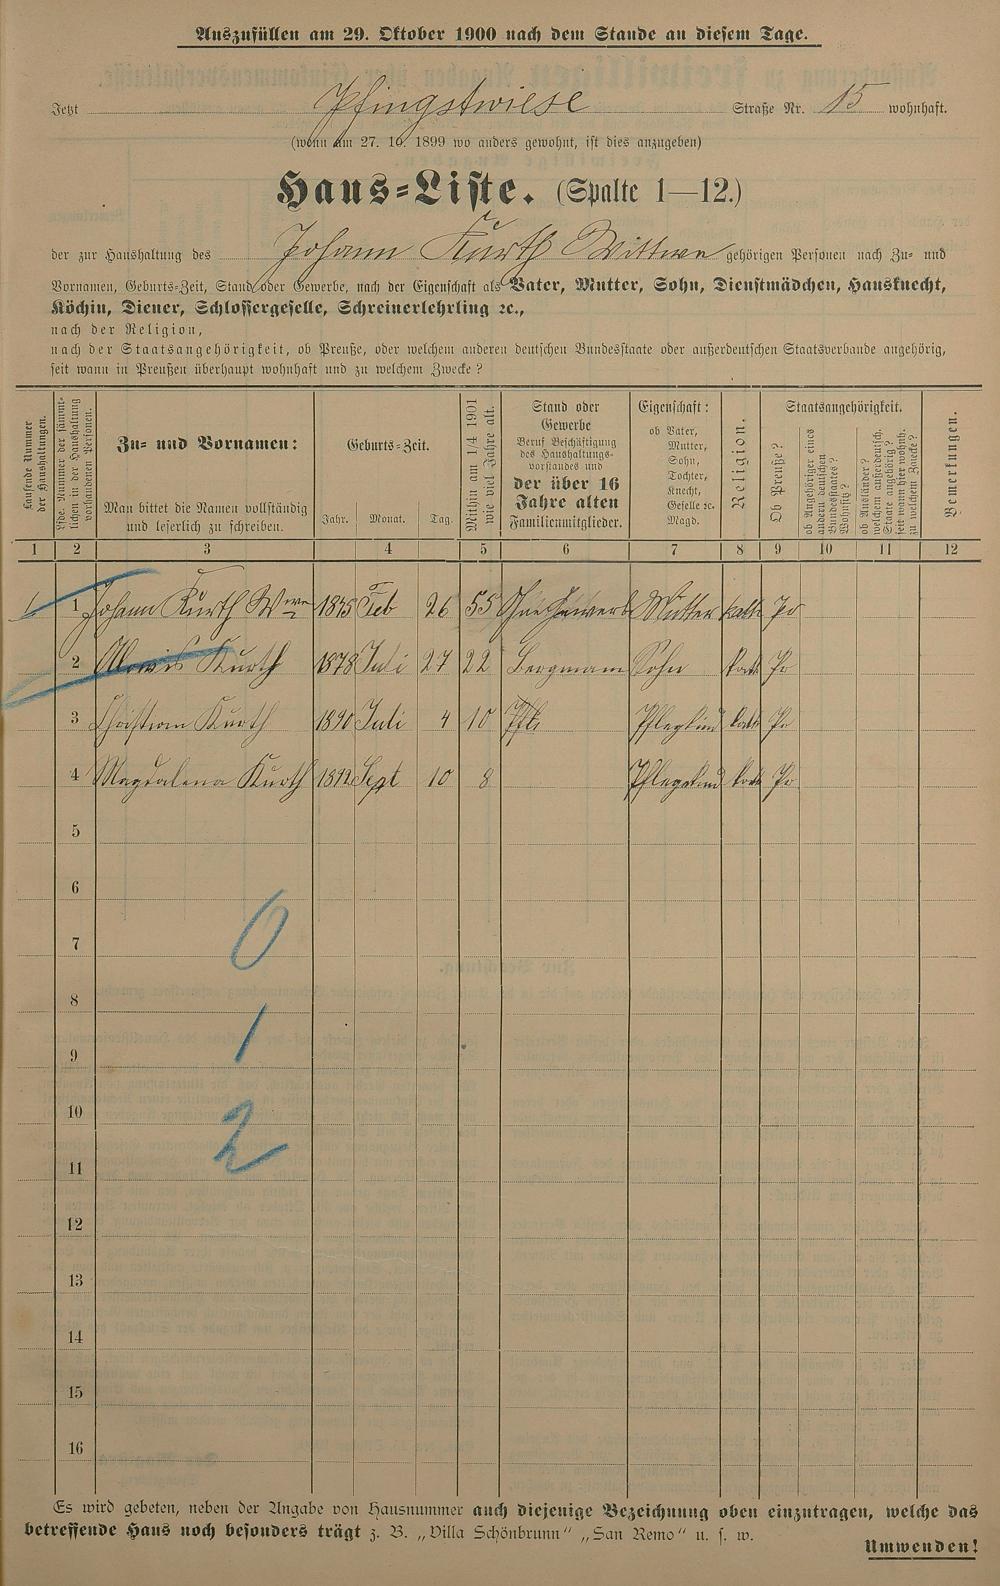 Auszufüllen am 29. Oktober 1900 nach dem Stande an diesem Tage.
Jetzt Pfingstwiese Straße Nr. 15 wohnhaft.
(wenn am 27. 10. 1899 wo anders gewohnt, ist dies anzugeben)
Haus=Liste. (Spalte 1—12.)
der zur Haushaltung des Johann Kurth Wittwe gehörigen Personen nach Zu- und
Vornamen, Geburts-Zeit, Stand oder Gewerbe, nach der Eigenschaft als Vater, Mutter, Sohn, Dienstmädchen, Hausknecht,
Köchin, Diener, Schlossergeselle, Schreinerlehrling ꝛc.,
nach der Religion,
nach der Staatsangehörigkeit, ob Preuße, oder welchem anderen deutschen Bundesstaate oder außerdeutschen Staatsverbande angehörig,
seit wann in Preußen überhaupt wohnhaft und zu welchem Zwecke?
Laufende Nummer der Haushaltungen.
Lfde. Nummer der sämmtlichen in der Haushaltung vorhandenen Personen.
Zu- und Vornamen:
Man bittet die Namen vollständig
und leserlich zu schreiben.
Geburts-Zeit.
Jahr. Monat. Tag.
Mithin am 1/4 1901
wie viel Jahre alt.
Stand oder
Gewerbe
Beruf Beschäftigung
des Haushaltungs-
vorstandes und
der über 16
Jahre alten
Familienmitglieder.
Eigenschaft:
ob Vater,
Mutter,
Sohn,
Tochter,
Knecht,
Geselle ꝛc.
Magd.
Religion.
Staatsangehörigkeit.
Ob Preuße?
ob Angehöriger eines
andern deutschen
Bundesstaates?
Wohnsitz?
ob Ausländer?
welchem außerdeutsch.
Staate angehörig?
seit wann hier wohnh.
zu welchem Zwecke?
Bemerkungen.
1 2 3 4 5 6 7 8 9 10 11 12
1 Johann Kurth Wwe 1845 Feb 26 55 Mutter kath Pr
2 Alowis Kurth 1878 Juli 27 22 Bergmann Sohn kath Pr
3 Christian Kurth 1890 Juli 4 10 Pflegkind kath Pr
4 Magdalena Kurth 1892 Sept 10 8 Pflegekind kath Pr
5
6
7
0
8
9
1
10
2
11
12
13
14
15
16
Es wird gebeten, neben der Angabe von Hausnummer auch diejenige Bezeichnung oben einzutragen, welche das
betreffende Haus noch besonders trägt z. B. „Villa Schönbrunn“ „San Remo“ u. s. w.
Umwenden!